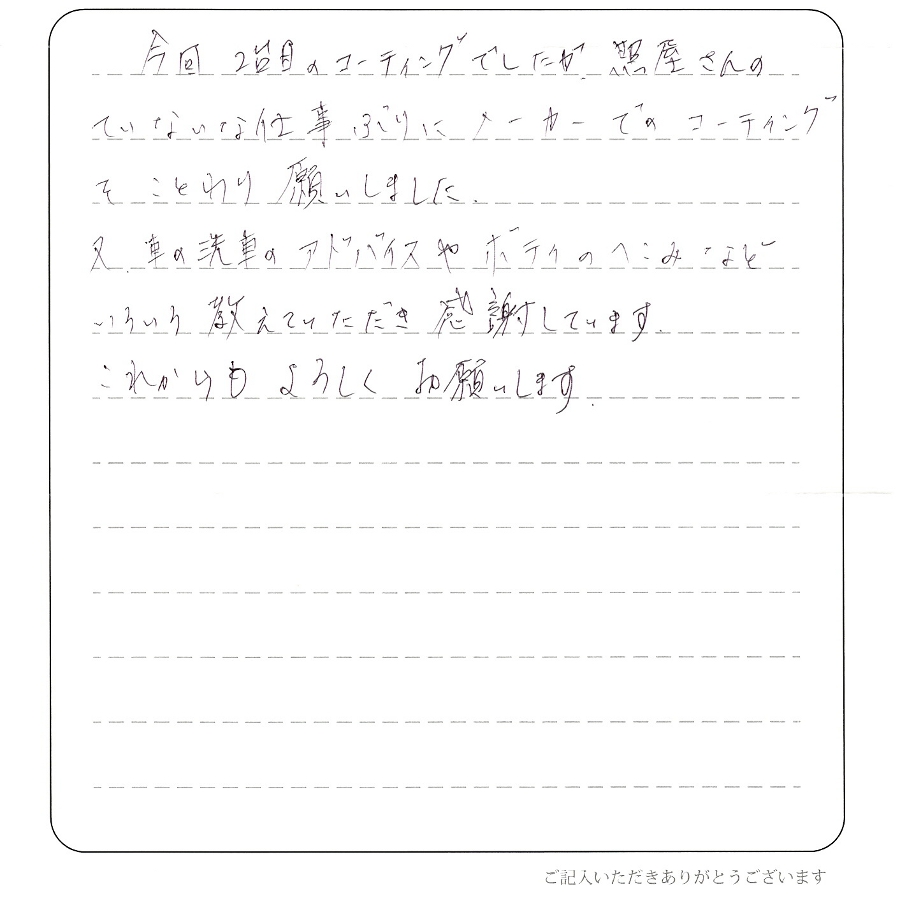 今回 2台目のコーティングでしたが、照屋さんの
ていねいな仕事ぶりにメーカーでのコーティング
をことわり願いしました。
又、車の洗車のアドバイスやボディのへこみなど
いろいろ教えていただき感謝しています。
これからもよろしくお願いします。
ご記入いただきありがとうございます